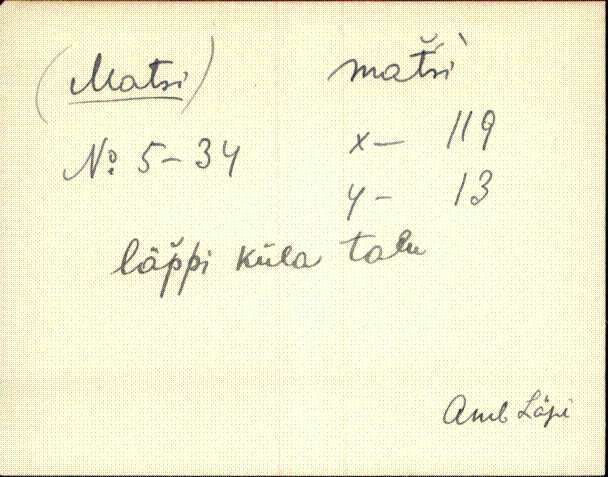 (Matsi) mat̆si`
No. 5-34 x- 119
y- 13
läp̆pi küla talu
Amb Läpi